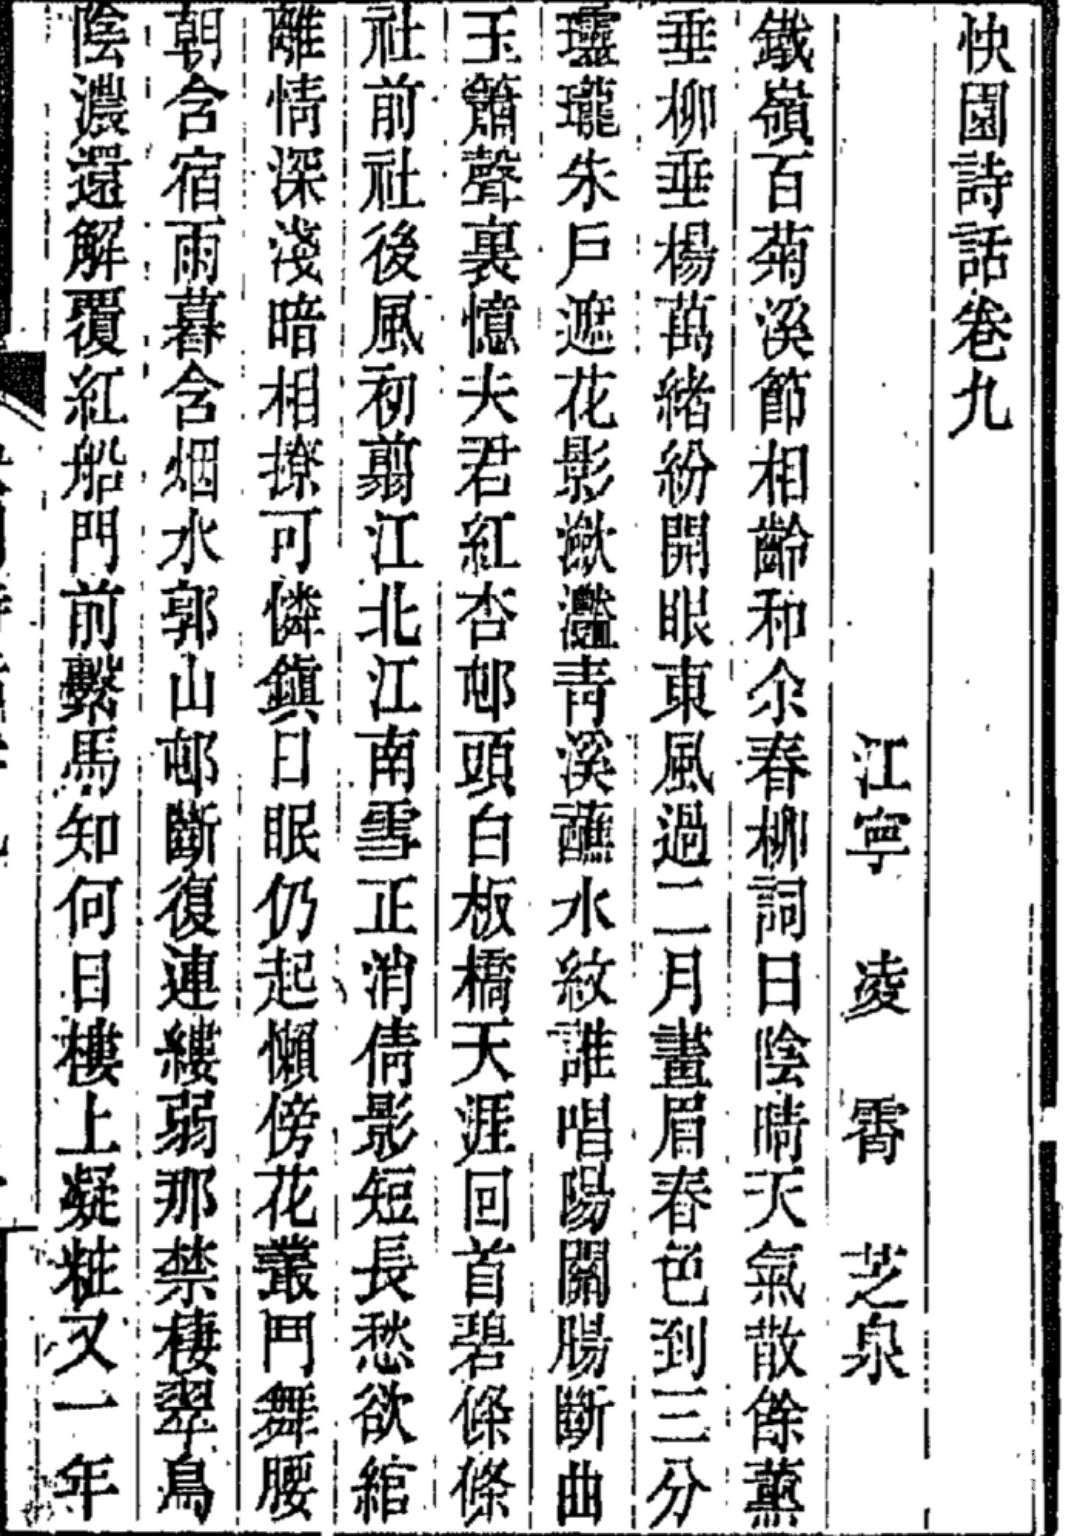 快園詩話卷九
江寧 凌 霄 芝泉
鐵嶺百菊溪節相齡和余春柳詞日陰晴天氣散餘薰
垂柳垂楊萬緒紛開眼東風過二月畫眉春色到三分
瓏朱戶遮花影瀲灩青溪蘸水紋誰唱陽關腸斷曲
玉簫聲裏憶夫君紅杏邨頭白板橋天涯回首碧條條
社前社後風初翦江北江南雪正消倩影短長愁欲綰
離情深淺暗相撩可憐鎮日眠仍起懶傍花叢鬥舞腰
朝含宿雨暮含烟水郭山邨斷復連縷弱那禁棲翠鳥
陰濃還解覆紅船門前繫馬知何日樓上凝粧又一年